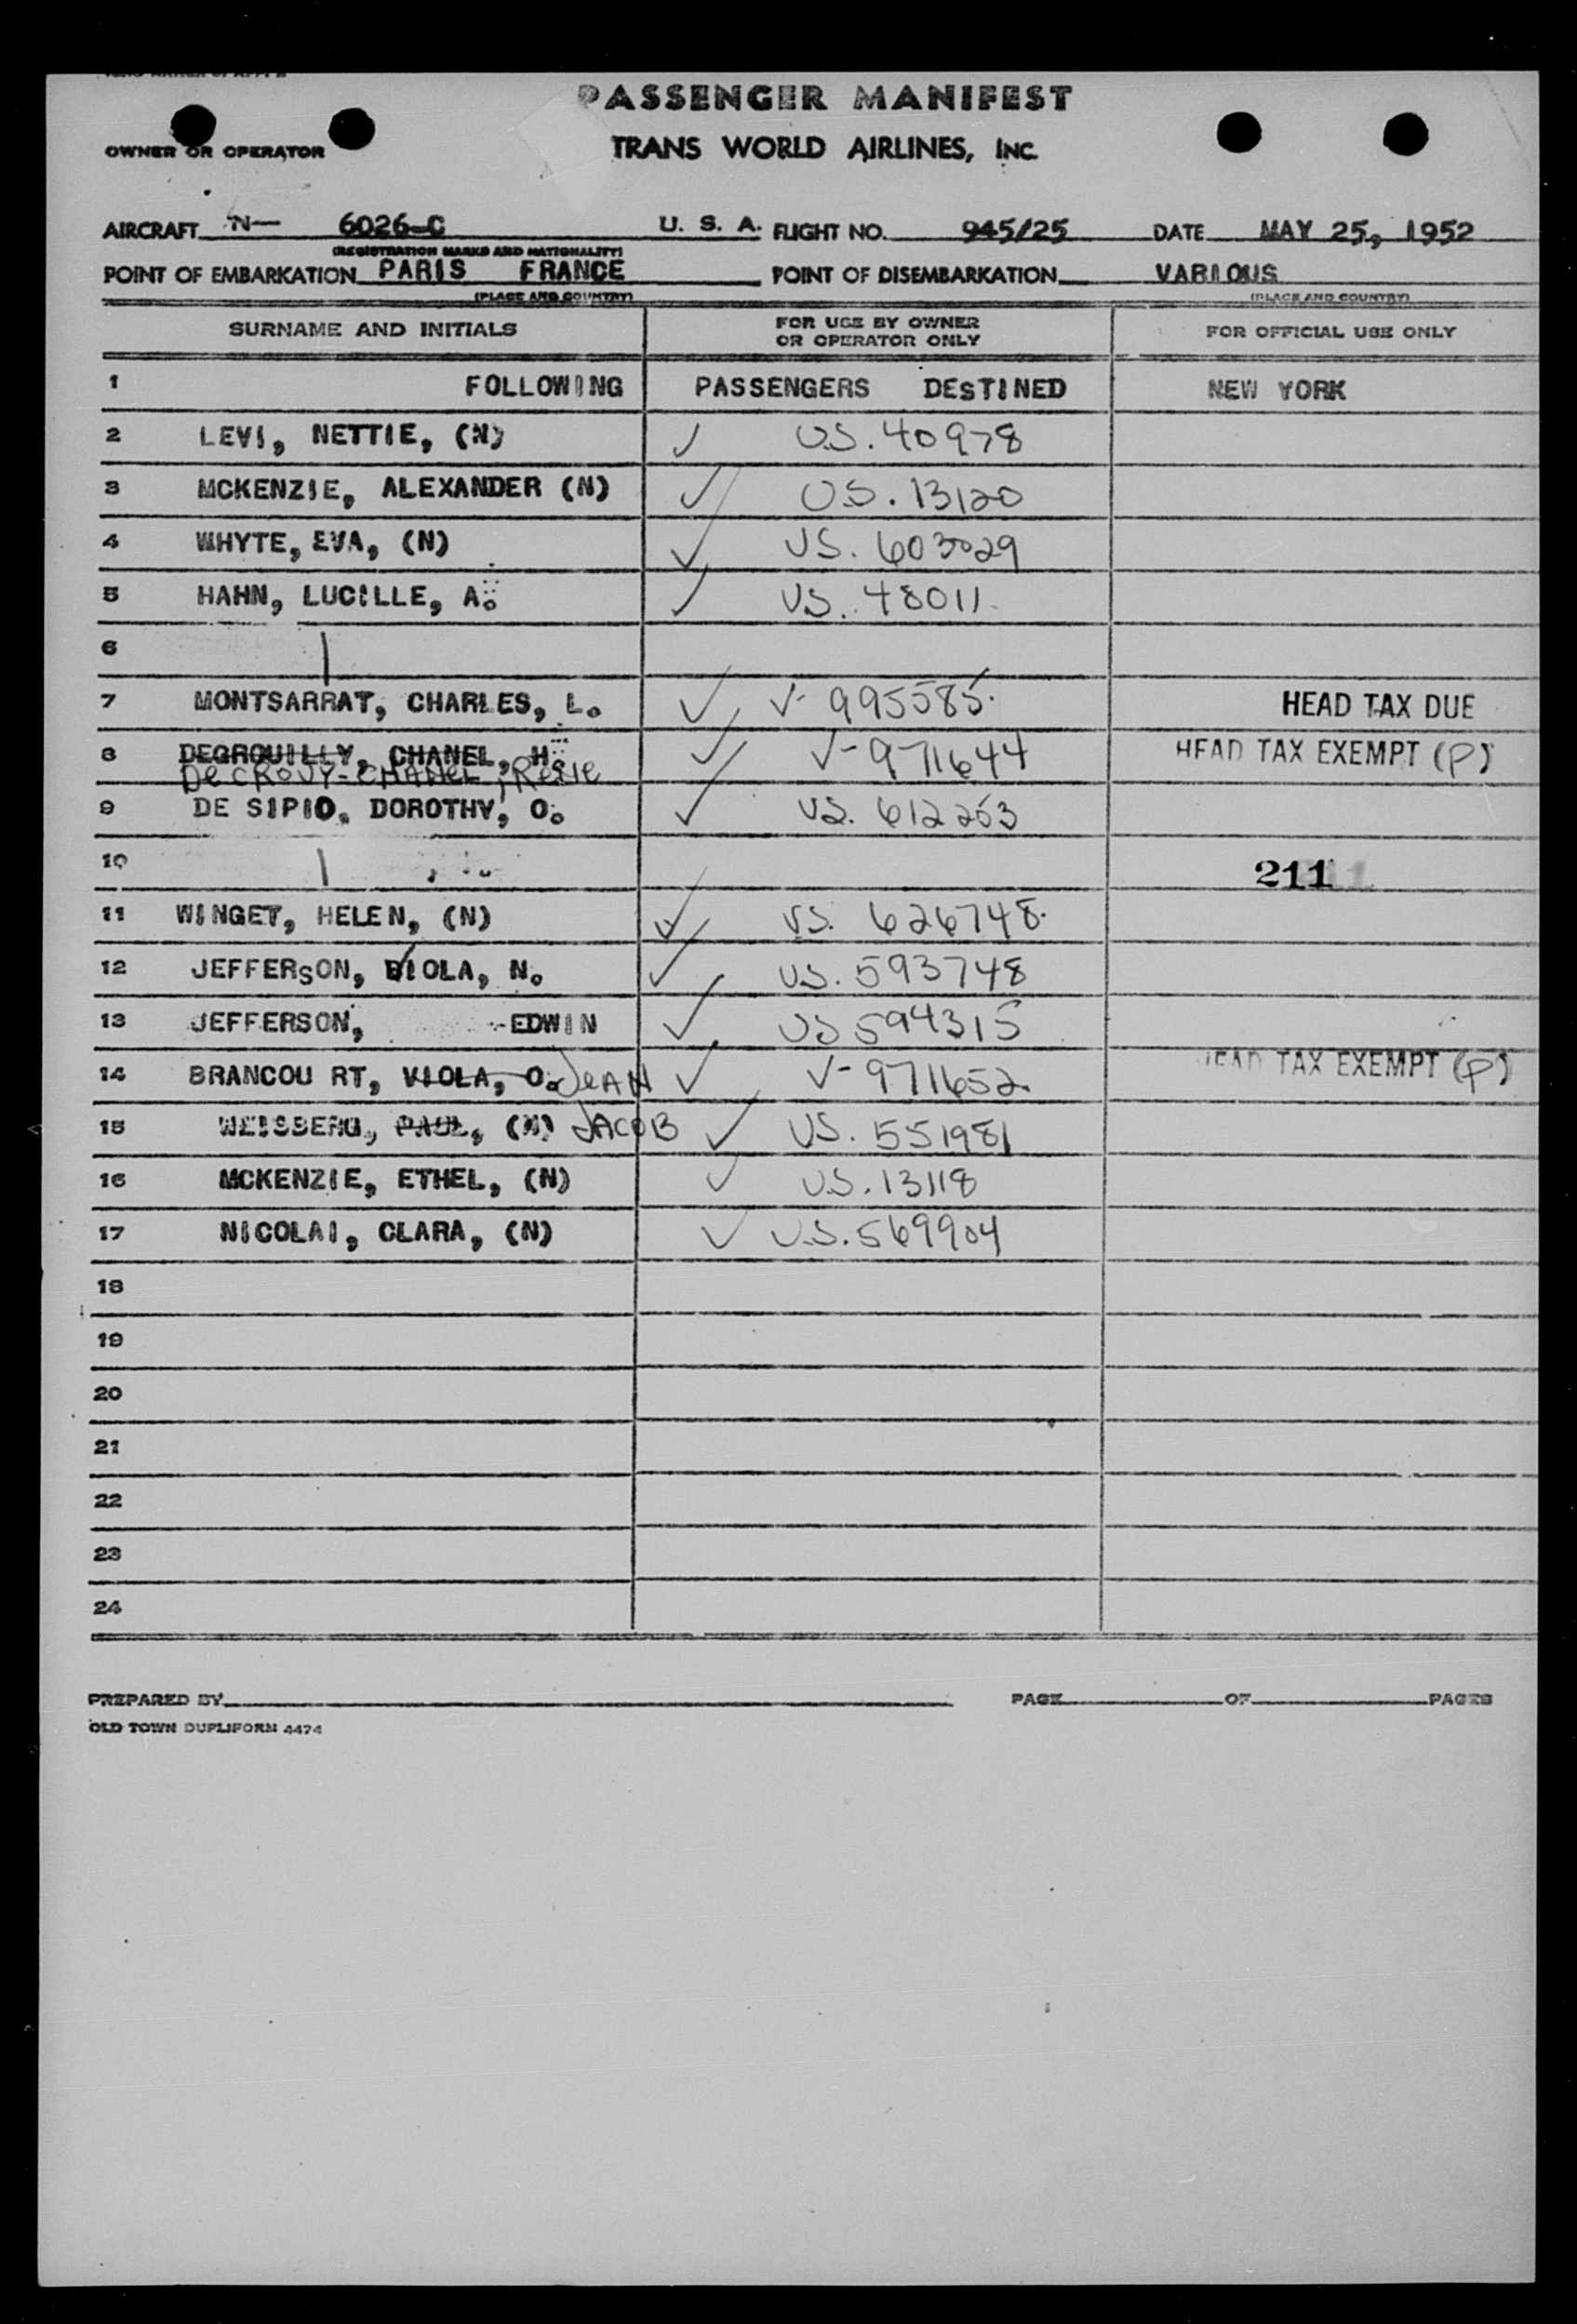 PASSENGER MANIFEST
OWNER OR OPERATOR TRANS WORLD AIRLINES, INC.
AIRCRAFT N- 6026-C U. S. A. FLIGHT NO. 945/25 DATE MAY 25, 1952
(REGISTRATION MARKS AND NATIONALITY)
POINT OF EMBARKATION PARIS FRANCE POINT OF DISEMBARKATION VARIOUS
(PLACE AND COUNTRY) (PLACE AND COUNTRY)
SURNAME AND INITIALS FOR USE BY OWNER OR OPERATOR ONLY FOR OFFICIAL USE ONLY
1 FOLLOWING PASSENGERS DESTINED NEW YORK
2 LEVI, NETTIE, (N) ✓ U.S. 40978
3 MCKENZIE, ALEXANDER (N) ✓ U.S. 13120
4 WHYTE, EVA, (N) ✓ US. 603029
5 HAHN, LUCILLE, A. ✓ US. 48011
6
7 MONTSARRAT, CHARLES, L. ✓ V- 995585. HEAD TAX DUE
8 DEGROUILLY, CHANEL, H. ✓ V-971644 HEAD TAX EXEMPT (P)
DE CROUY-CHANEL,
9 DE SIPIO, DOROTHY, O. ✓ US. 612253
10 211
11 WINGET, HELEN, (N) ✓ US. 626748.
12 JEFFERSON, VIOLA, N. ✓ US. 593748
13 JEFFERSON, EDWIN ✓ US 594315
14 BRANCOU RT, VIOLA, O. JEAN ✓ V-971652. HEAD TAX EXEMPT (P)
15 WEISSBERG, PAUL, (N) JACOB ✓ US. 551981
16 MCKENZIE, ETHEL, (N) ✓ U.S. 13118
17 NICOLAI, CLARA, (N) ✓ U.S. 569904
18
19
20
21
22
23
24
PREPARED BY PAGE OF PAGES
OLD TOWN DUPLIFORM 4474